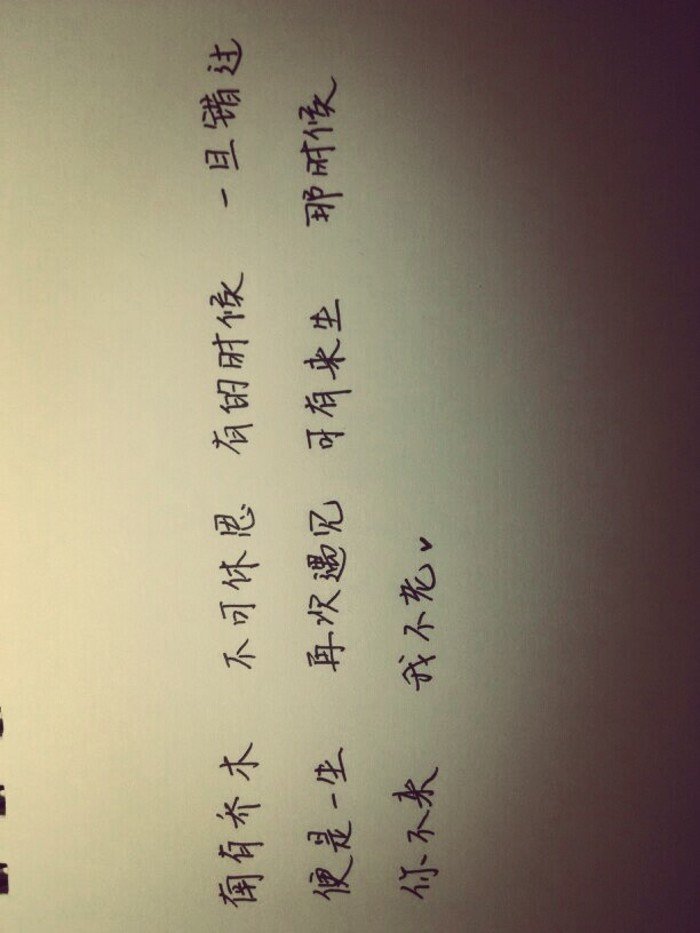 南有乔木 不可休思 有的时候 一旦错过
便是一生 再次遇见 可有来生 那时候
你不来 我不老